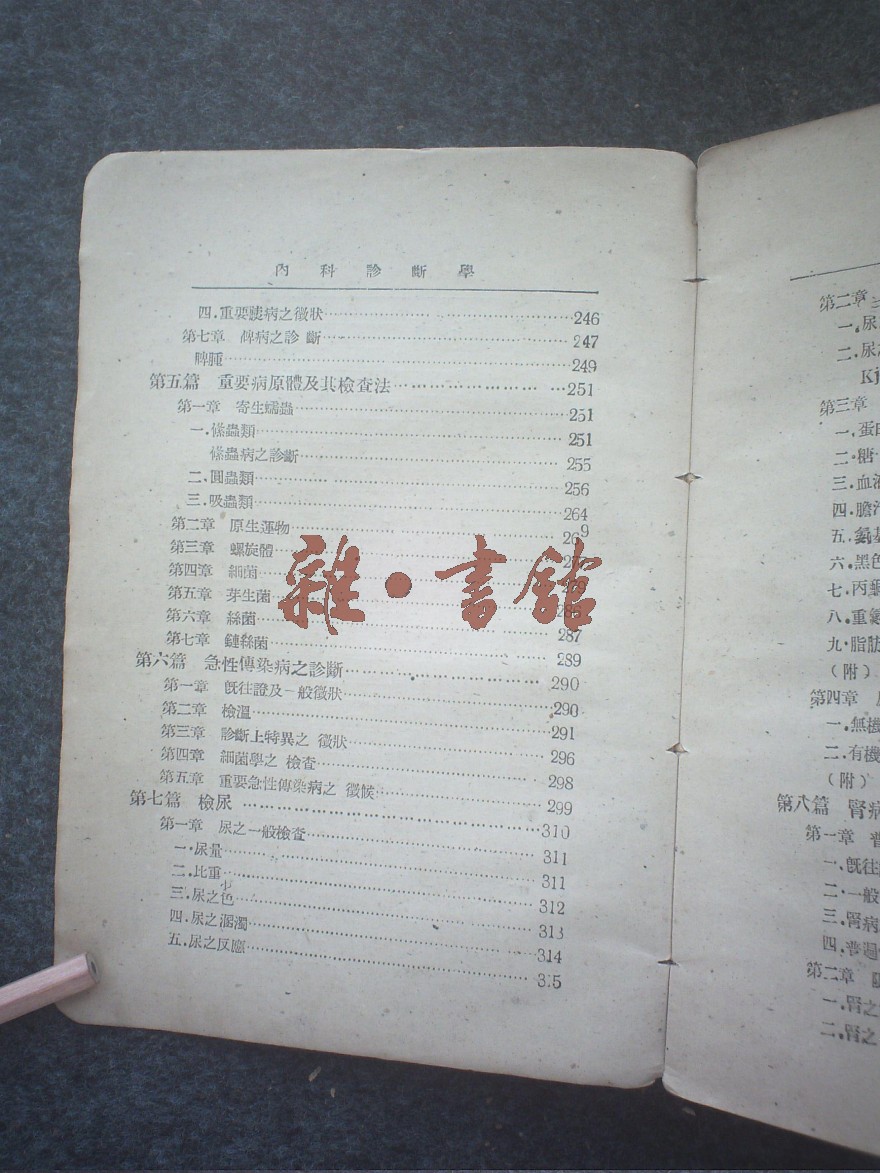 內科診斷學
四.重要胰病之徵狀…246
第七章 脾病之診斷…247
脾腫…249
第五篇 重要病原體及其檢查法…251
第一章 寄生蠕蟲…251
一.絛蟲類…251
絛蟲病之診斷…255
二.圓蟲類…256
三.吸蟲類…264
第二章 原生運物…269
第三章 螺旋體
第四章 細菌
第五章 芽生菌
第六章 絲菌…287
第七章 鏈絲菌…289
第六篇 急性傳染病之診斷…290
第一章 旣往證及一般徵狀…290
第二章 檢溫…291
第三章 診斷上特異之 徵狀…296
第四章 細菌學之 檢查…298
第五章 重要急性傳染病之 徵候…299
第七篇 檢尿…310
第一章 尿之一般檢查…311
一.尿量…311
二.比重…312
三.尿之色…313
四.尿之溷濁…314
五.尿之反應…315
雜·書館
第二章
一.尿
二.尿
第三章
一.蛋白
二.糖
三.血液
四.膽汁
五.氨基
六.黑色
七.丙
八.重氮
九.脂肪
(附)
第四章
一.無機
二.有機
(附)
第八篇 腎病
第一章 普
一.旣往
二.一般
三.腎病
四.普通
第二章
一.腎之
二.腎之